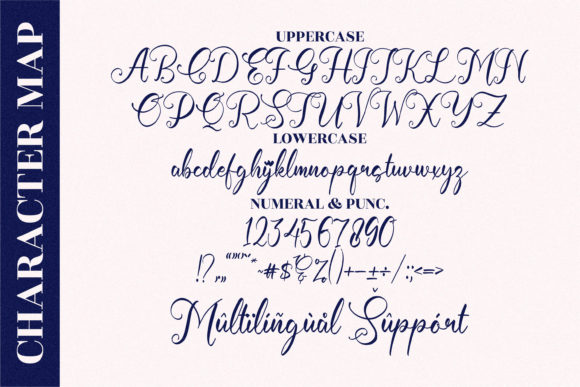 CHARACTER MAP
UPPERCASE
ABCDEFGHIJKLMN
OPQRSTUVWXYZ
LOWERCASE
abcdefghijklmnopqrstuvwxyz
NUMERAL & PUNC.
1234567890
!?,,,""''~*~#$%()+-±÷/:;<=>
Mûltïlíñgùàl Šûppórt